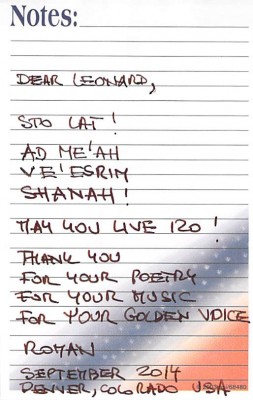 Notes:
DEAR LEONARD,
STO LAT!
AD ME'AH
VE'ESRIM
SHANAH!
MAY YOU LIVE 120!
THANK YOU
FOR YOUR POETRY
FOR YOUR MUSIC
FOR YOUR GOLDEN VOICE
ROMAN
SEPTEMBER 2014
DENVER, COLORADO USA